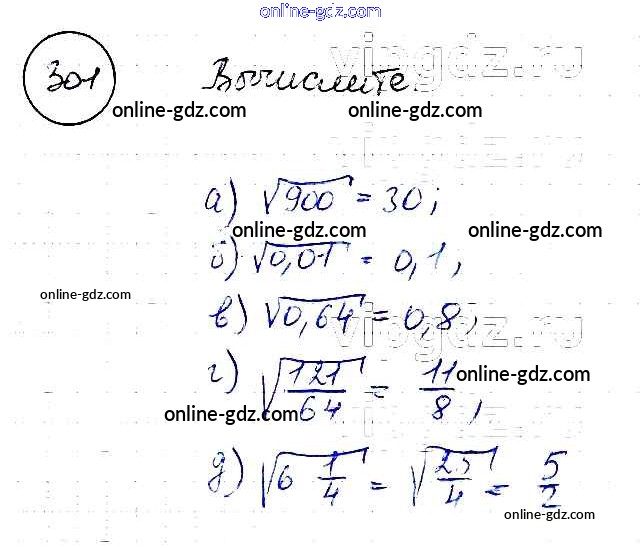 online-gdz.com
vipgdz.ru
301 Вычислите.
online-gdz.com online-gdz.com
а) √900 = 30;
online-gdz.com online-gdz.com
б) √0,01 = 0,1,
online-gdz.com
в) √0,64 = 0,8,
vipgdz.ru
г) √121/64 = 11/8,
online-gdz.com
online-gdz.com
д) √6 1/4 = √25/4 = 5/2
online-gdz.com